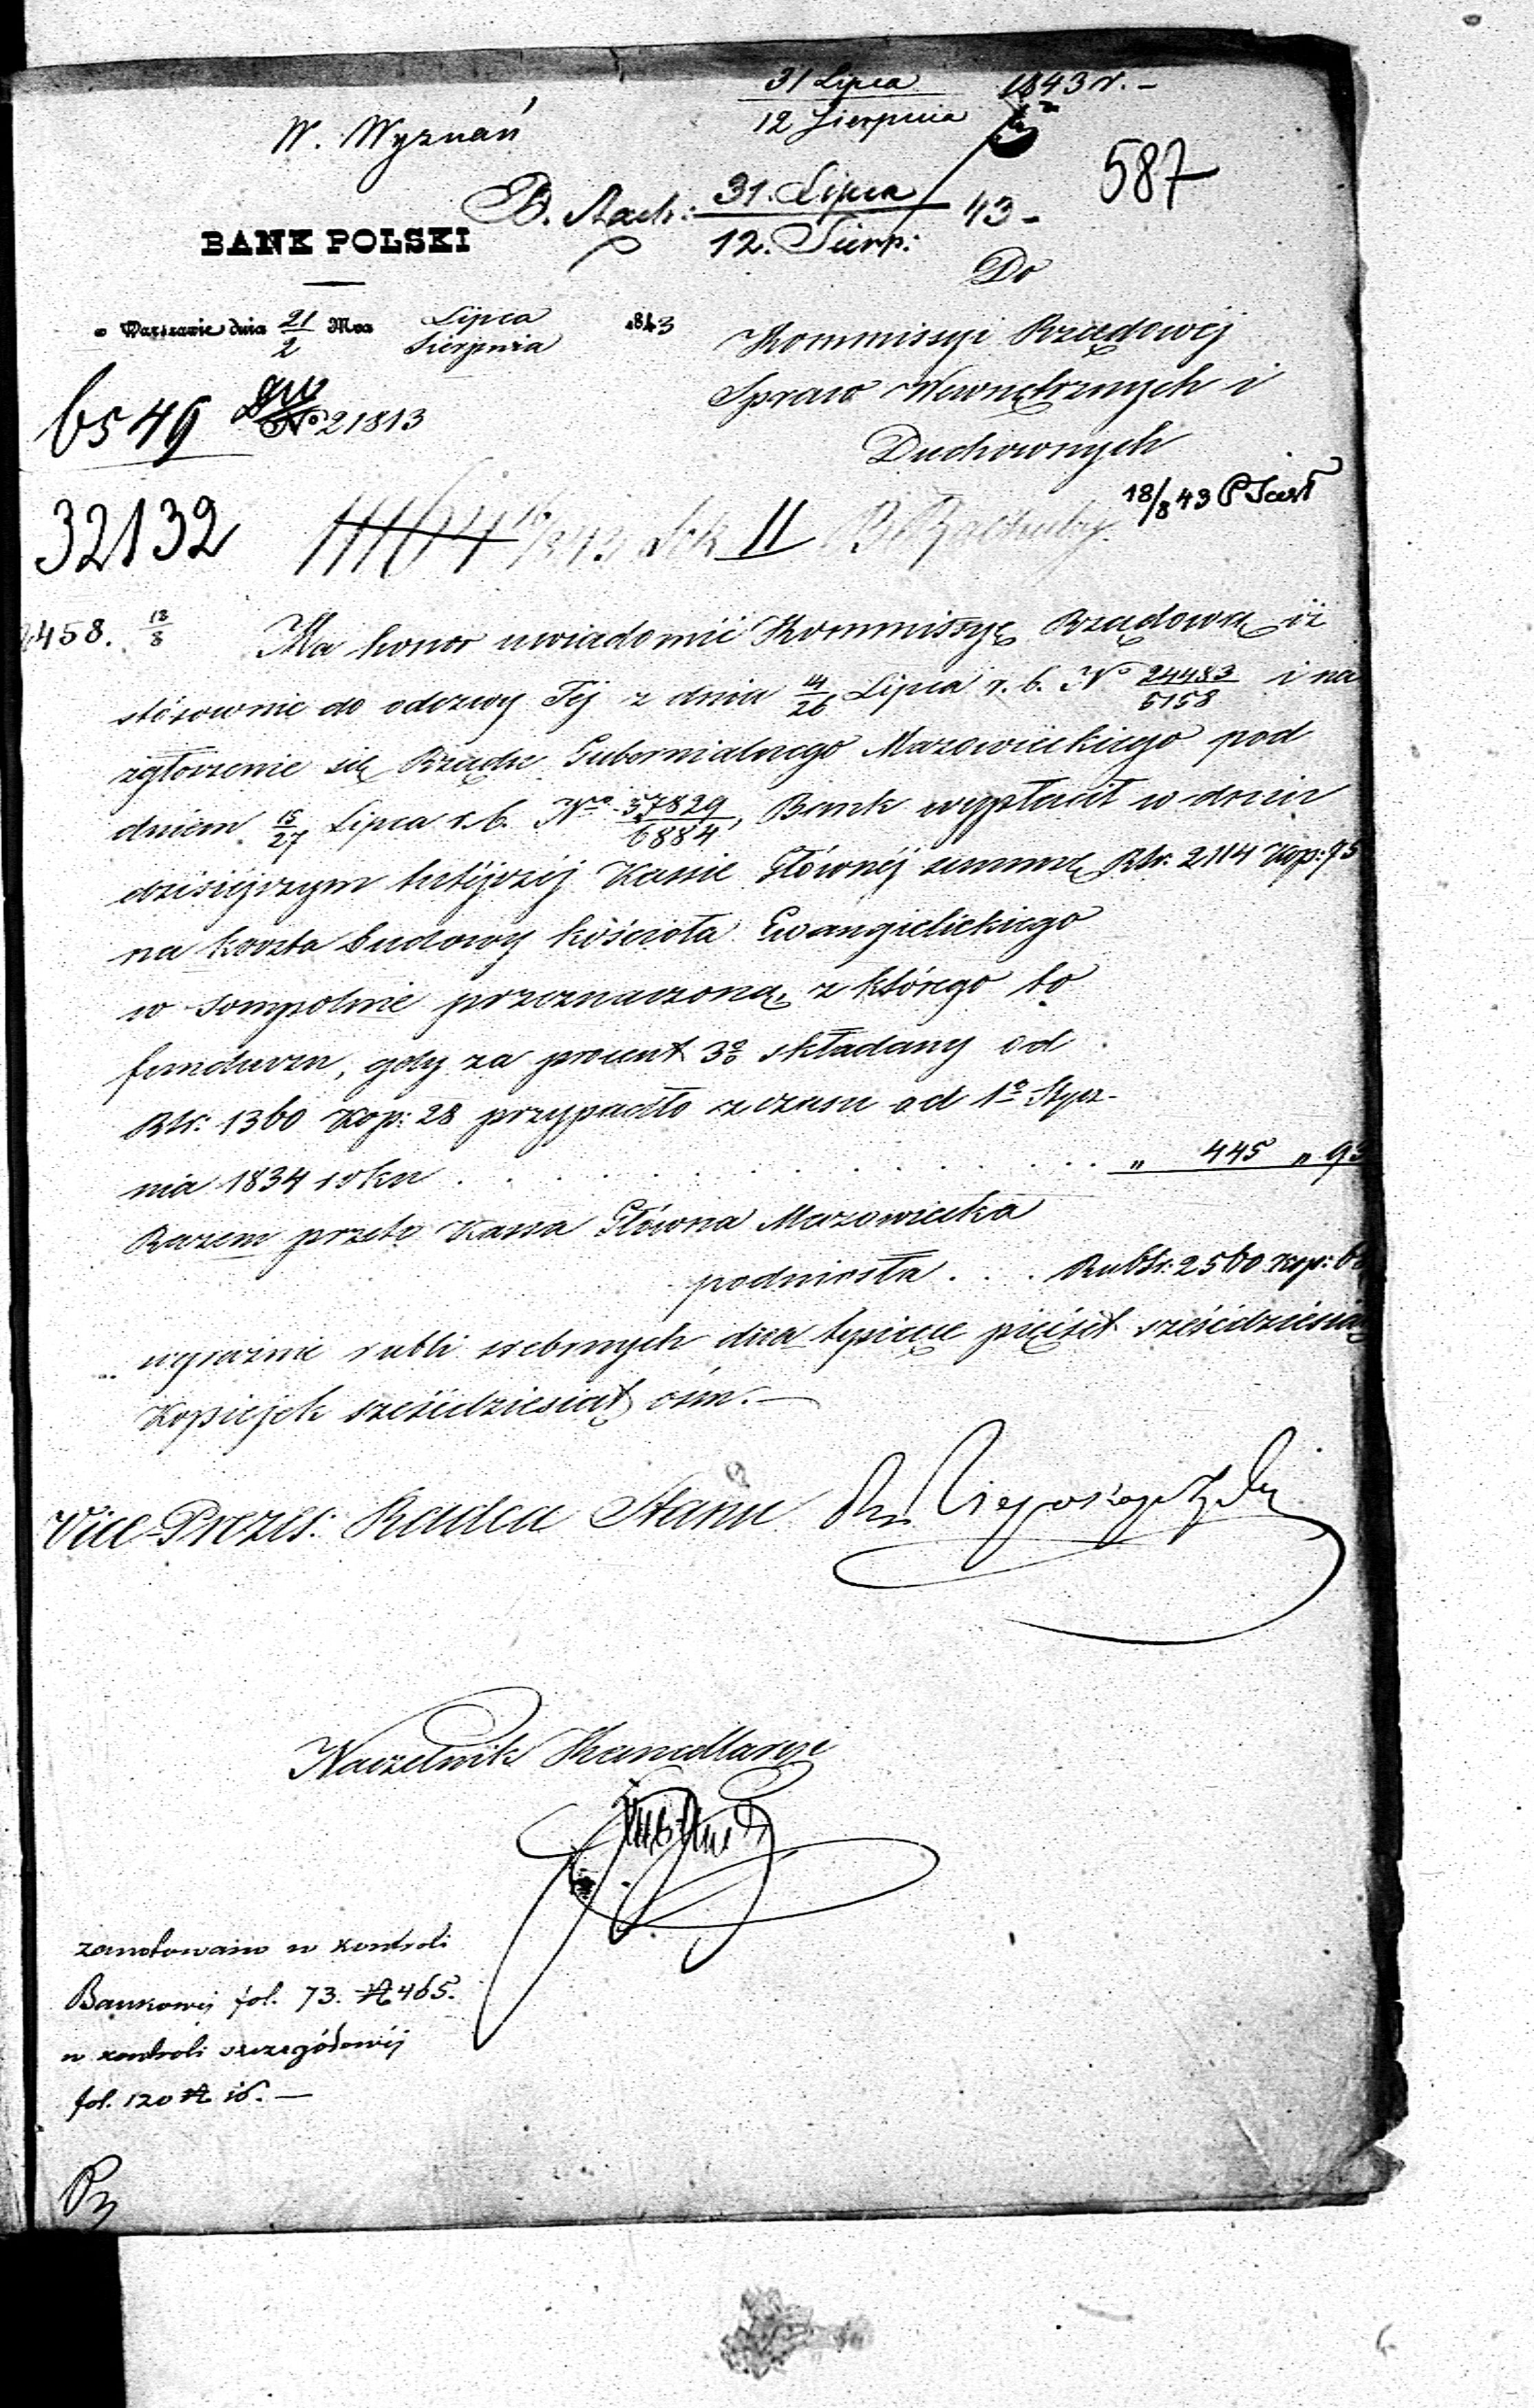 31 Lipca 1843 r. -
12 Sierpnia
W. Wyznań
587
B. Rach: 31. Lipca 43 -
12. Sierp:
BANK POLSKI
Do
w Warszawie dnia 21/2 Mca Lipca Sierpnia 1843
Kommissyi Rządowéj
Spraw Wewnętrznych i
Duchownych
6549
No 21813
18/8 43
32132
11164
II
458. 18/8
Ma honor uwiadomić Kommissyę Rządową iż
stósownie do odezwy Jéj z dnia 14/26 Lipca r. b. No 24483/5158 i na
zgłoszenie się Rządu Gubernialnego Mazowieckiego pod
dniem 15/27 Lipca r. b. No 57829/6884, Bank wypłacił w dniu
dzisiejszym tutejszéj Kassie Głównéj summę Rsr. 2114 Kop: 75
na koszta budowy kościoła Ewangielickiego
w Sompolnie przeznaczoną, z którego to
funduszu, gdy za procent 3% składany od
Rsr: 1360 Kop: 28 przypadło z czasu od 1o Stycz-
nia 1834 roku . . . . . . . . . . . . „ 445 „ 93
Razem przeto Kassa Główna Mazowiecka
podniosła . . . Rubsr: 2560 Kop: 68
wyraźnie rubli srebrnych dwa tysiące pięćset sześćdziesiąt
Kopiejek sześćdziesiąt ośm. —
Vice-Prezes: Radca Stanu
Naczelnik Kancellaryi
zanotowano w Kontroli
Bankowéj fol. 73. No 465.
w kontroli szczegółowéj
fol. 120 No 16. —